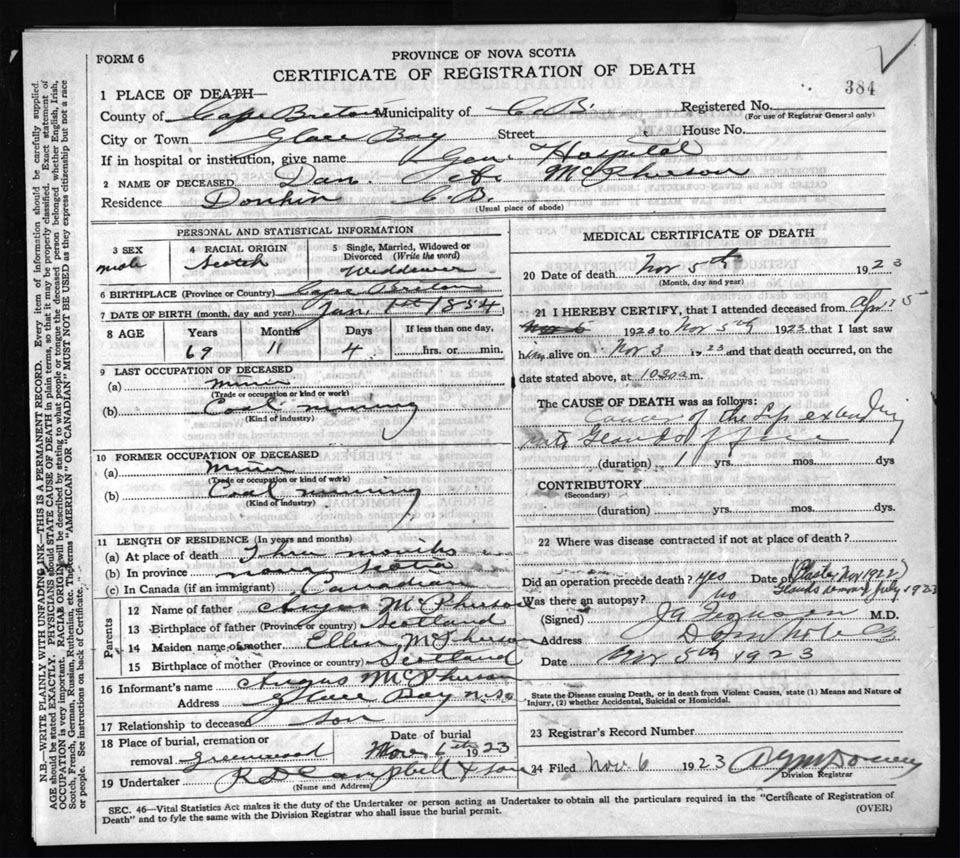 FORM 6
PROVINCE OF NOVA SCOTIA
CERTIFICATE OF REGISTRATION OF DEATH
384
1 PLACE OF DEATH—
County of Cape Breton Municipality of C.B. Registered No.
(For use of Registrar General only)
City or Town Glace Bay Street House No.
If in hospital or institution, give name Gen Hospital
2 NAME OF DECEASED Dan. McPherson
Residence Donkin C.B.
(Usual place of abode)
PERSONAL AND STATISTICAL INFORMATION
3 SEX male
4 RACIAL ORIGIN Scotch
5 Single, Married, Widowed or Divorced (Write the word) Widdower
6 BIRTHPLACE (Province or Country) Cape Breton
7 DATE OF BIRTH (month, day and year) Jan. 1st 1854
8 AGE Years Months Days If less than one day,
69 11 4 hrs. or min.
9 LAST OCCUPATION OF DECEASED
(a) miner
(Trade or occupation or kind or work)
(b) Coal mining
(Kind of industry)
10 FORMER OCCUPATION OF DECEASED
(a) Miner
(Trade or occupation or kind of work)
(b) Coal mining
(Kind of industry)
11 LENGTH OF RESIDENCE (In years and months)
(a) At place of death Three months
(b) In province nova Scotia
(c) In Canada (if an immigrant) Canadian
Parents
12 Name of father Angus McPherson
13 Birthplace of father (Province or country) Scotland
14 Maiden name of mother Ellen McPherson
15 Birthplace of mother (Province or country) Scotland
16 Informant's name Angus McPherson
Address Glace Bay N.S.
17 Relationship to deceased son
18 Place of burial, cremation or Date of burial
removal Greenwood Nov. 6th 1923
19 Undertaker R D Campbell & son
(Name and Address)
MEDICAL CERTIFICATE OF DEATH
20 Date of death Nov 5th 1923
(Month, day and year)
21 I HEREBY CERTIFY, that I attended deceased from Apr 15
1923 to Nov 5th 1923 that I last saw
him alive on Nov 3 1923 and that death occurred, on the
date stated above, at 1030 a m.
The CAUSE OF DEATH was as follows:
Cancer of the Lip extending
into Glands of
(duration) 1 yrs. mos. dys
CONTRIBUTORY
(Secondary)
(duration) yrs. mos. dys.
22 Where was disease contracted if not at place of death?
Did an operation precede death? yes Date of (Nov 1922)
Glands July 1923
Was there an autopsy? no
(Signed) M.D.
Address
Date Nov 5th 1923
State the Disease causing Death, or in death from Violent Causes, state (1) Means and Nature of
Injury, (2) whether Accidental, Suicidal or Homicidal.
23 Registrar's Record Number
24 Filed Nov 6 1923
Division Registrar
SEC. 46—Vital Statistics Act makes it the duty of the Undertaker or person acting as Undertaker to obtain all the particulars required in the "Certificate of Registration of
Death" and to fyle the same with the Division Registrar who shall issue the burial permit.
(OVER)
N.B.—WRITE PLAINLY WITH UNFADING INK—THIS IS A PERMANENT RECORD. Every item of information should be carefully supplied.
AGE should be stated EXACTLY. PHYSICIANS should STATE CAUSE OF DEATH in plain terms, so that it may be properly classified. Exact statement of
OCCUPATION is very important. RACIAL ORIGIN will be described by stating to what people or tongue the deceased person belonged whether English, Irish,
Scotch, French, German, Russian, Ruthenian, etc. The terms "AMERICAN" OR "CANADIAN" MUST NOT BE USED as they express citizenship but not a race
or people. See instructions on back of Certificate.